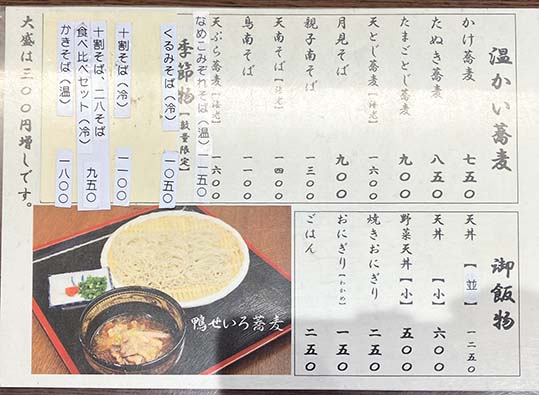 温かい蕎麦
かけ蕎麦 七五〇
たぬき蕎麦 八五〇
たまごとじ蕎麦 九〇〇
天とじ蕎麦【海老】 一六〇〇
月見そば 九〇〇
親子南そば 一三〇〇
天南そば【海老】 一四〇〇
鳥南そば 一一〇〇
天ぷら蕎麦【海老】 一六〇〇
なめこみぞれそば(温) 一一五〇
季節物【数量限定】
くるみそば(冷) 一〇五〇
十割そば(冷) 一一〇〇
十割そば、二八そば
食べ比べセット(冷) 九五〇
かきそば(温) 一八〇〇
大盛は三〇〇円増しです。
御飯物
天丼【並】 一二五〇
天丼【小】 六〇〇
野菜天丼【小】 五〇〇
焼きおにぎり 二五〇
おにぎり【わかめ】 一五〇
ごはん 二五〇
鴨せいろ蕎麦